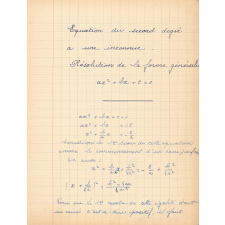 Equation du second degré
à une inconnue.
Résolution de la forme générale
ax² + bx + c = 0
ax² + bx + c = 0
ax² + bx = -c
x² + b/a x = -c/a
le 1er terme de cette équation
comme le commencement d'un carré parfait
x² + b/a x + b²/4a² = -c/a + b²/4a²
(x + b/2a)² = b² - 4ac/4a²
Pour que le 1er membre de cette égalité étant
un carré c'est à dire positif, il faut